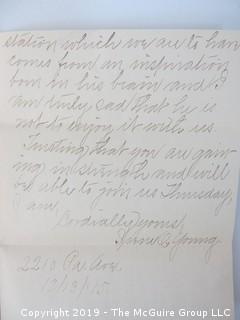 station which we are to have
comes from an inspiration
born in his brain and I
am truly sad that he is
not to enjoy it with us.
Trusting that you are gain-
ing in strength and will
be able to join us Thursday,
I am,
Cordially yours,
Young.
2210 Pa Ave.
12/13/15.
Copyright 2019 - The McGuire Group LLC